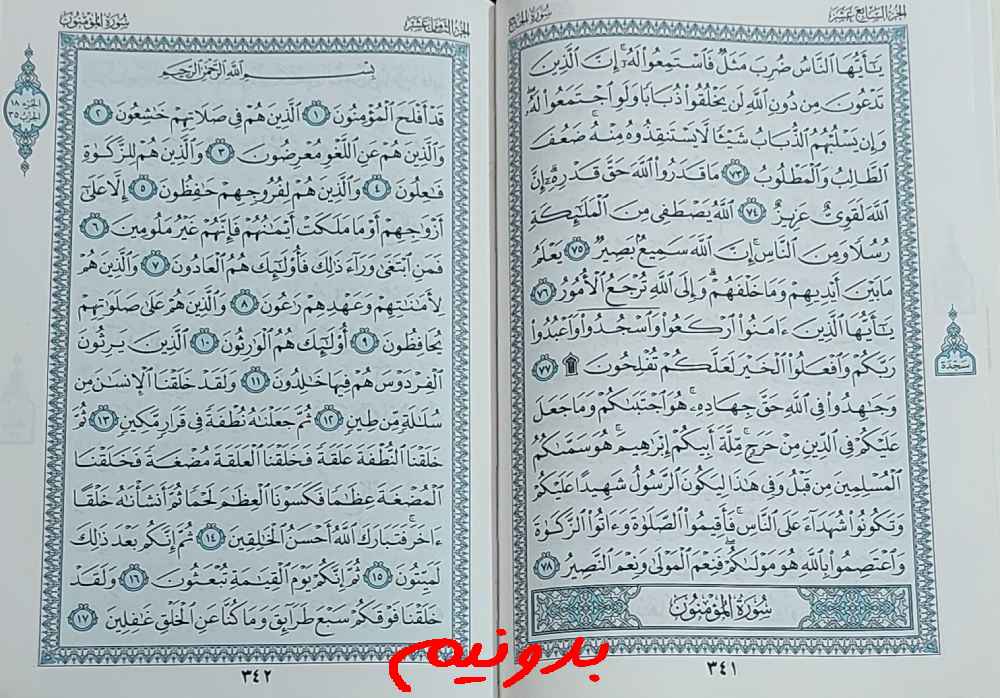 الجزء السابع عشر
سورة الحج
يَٰٓأَيُّهَا ٱلنَّاسُ ضُرِبَ مَثَلٌ فَٱسْتَمِعُوا۟ لَهُۥٓ ۚ إِنَّ ٱلَّذِينَ
تَدْعُونَ مِن دُونِ ٱللَّهِ لَن يَخْلُقُوا۟ ذُبَابًا وَلَوِ ٱجْتَمَعُوا۟ لَهُۥ ۖ
وَإِن يَسْلُبْهُمُ ٱلذُّبَابُ شَيْـًٔا لَّا يَسْتَنقِذُوهُ مِنْهُ ۚ ضَعُفَ
ٱلطَّالِبُ وَٱلْمَطْلُوبُ ٧٣ مَا قَدَرُوا۟ ٱللَّهَ حَقَّ قَدْرِهِۦٓ ۗ إِنَّ
ٱللَّهَ لَقَوِىٌّ عَزِيزٌ ٧٤ ٱللَّهُ يَصْطَفِى مِنَ ٱلْمَلَٰٓئِكَةِ
رُسُلًا وَمِنَ ٱلنَّاسِ ۚ إِنَّ ٱللَّهَ سَمِيعٌۢ بَصِيرٌ ٧٥ يَعْلَمُ
مَا بَيْنَ أَيْدِيهِمْ وَمَا خَلْفَهُمْ ۗ وَإِلَى ٱللَّهِ تُرْجَعُ ٱلْأُمُورُ ٧٦
يَٰٓأَيُّهَا ٱلَّذِينَ ءَامَنُوا۟ ٱرْكَعُوا۟ وَٱسْجُدُوا۟ وَٱعْبُدُوا۟
رَبَّكُمْ وَٱفْعَلُوا۟ ٱلْخَيْرَ لَعَلَّكُمْ تُفْلِحُونَ ۩ ٧٧
وَجَٰهِدُوا۟ فِى ٱللَّهِ حَقَّ جِهَادِهِۦ ۚ هُوَ ٱجْتَبَىٰكُمْ وَمَا جَعَلَ
عَلَيْكُمْ فِى ٱلدِّينِ مِنْ حَرَجٍ ۚ مِّلَّةَ أَبِيكُمْ إِبْرَٰهِيمَ ۚ هُوَ سَمَّىٰكُمُ
ٱلْمُسْلِمِينَ مِن قَبْلُ وَفِى هَٰذَا لِيَكُونَ ٱلرَّسُولُ شَهِيدًا عَلَيْكُمْ
وَتَكُونُوا۟ شُهَدَآءَ عَلَى ٱلنَّاسِ ۚ فَأَقِيمُوا۟ ٱلصَّلَوٰةَ وَءَاتُوا۟ ٱلزَّكَوٰةَ
وَٱعْتَصِمُوا۟ بِٱللَّهِ هُوَ مَوْلَىٰكُمْ ۖ فَنِعْمَ ٱلْمَوْلَىٰ وَنِعْمَ ٱلنَّصِيرُ ٧٨
سُورَةُ المُؤْمِنُونَ
سجدة
٣٤١
الجزء الثامن عشر
سورة المؤمنون
بِسْمِ ٱللَّهِ ٱلرَّحْمَٰنِ ٱلرَّحِيمِ
قَدْ أَفْلَحَ ٱلْمُؤْمِنُونَ ١ ٱلَّذِينَ هُمْ فِى صَلَاتِهِمْ خَٰشِعُونَ ٢
وَٱلَّذِينَ هُمْ عَنِ ٱللَّغْوِ مُعْرِضُونَ ٣ وَٱلَّذِينَ هُمْ لِلزَّكَوٰةِ
فَٰعِلُونَ ٤ وَٱلَّذِينَ هُمْ لِفُرُوجِهِمْ حَٰفِظُونَ ٥ إِلَّا عَلَىٰٓ
أَزْوَٰجِهِمْ أَوْ مَا مَلَكَتْ أَيْمَٰنُهُمْ فَإِنَّهُمْ غَيْرُ مَلُومِينَ ٦
فَمَنِ ٱبْتَغَىٰ وَرَآءَ ذَٰلِكَ فَأُو۟لَٰٓئِكَ هُمُ ٱلْعَادُونَ ٧ وَٱلَّذِينَ هُمْ
لِأَمَٰنَٰتِهِمْ وَعَهْدِهِمْ رَٰعُونَ ٨ وَٱلَّذِينَ هُمْ عَلَىٰ صَلَوَٰتِهِمْ
يُحَافِظُونَ ٩ أُو۟لَٰٓئِكَ هُمُ ٱلْوَٰرِثُونَ ١٠ ٱلَّذِينَ يَرِثُونَ
ٱلْفِرْدَوْسَ هُمْ فِيهَا خَٰلِدُونَ ١١ وَلَقَدْ خَلَقْنَا ٱلْإِنسَٰنَ مِن
سُلَٰلَةٍ مِّن طِينٍ ١٢ ثُمَّ جَعَلْنَٰهُ نُطْفَةً فِى قَرَارٍ مَّكِينٍ ١٣ ثُمَّ
خَلَقْنَا ٱلنُّطْفَةَ عَلَقَةً فَخَلَقْنَا ٱلْعَلَقَةَ مُضْغَةً فَخَلَقْنَا
ٱلْمُضْغَةَ عِظَٰمًا فَكَسَوْنَا ٱلْعِظَٰمَ لَحْمًا ثُمَّ أَنشَأْنَٰهُ خَلْقًا
ءَاخَرَ ۚ فَتَبَارَكَ ٱللَّهُ أَحْسَنُ ٱلْخَٰلِقِينَ ١٤ ثُمَّ إِنَّكُم بَعْدَ ذَٰلِكَ
لَمَيِّتُونَ ١٥ ثُمَّ إِنَّكُمْ يَوْمَ ٱلْقِيَٰمَةِ تُبْعَثُونَ ١٦ وَلَقَدْ
خَلَقْنَا فَوْقَكُمْ سَبْعَ طَرَآئِقَ وَمَا كُنَّا عَنِ ٱلْخَلْقِ غَٰفِلِينَ ١٧
الجزء ١٨
الحزب ٣٥
٣٤٢
بدونيم